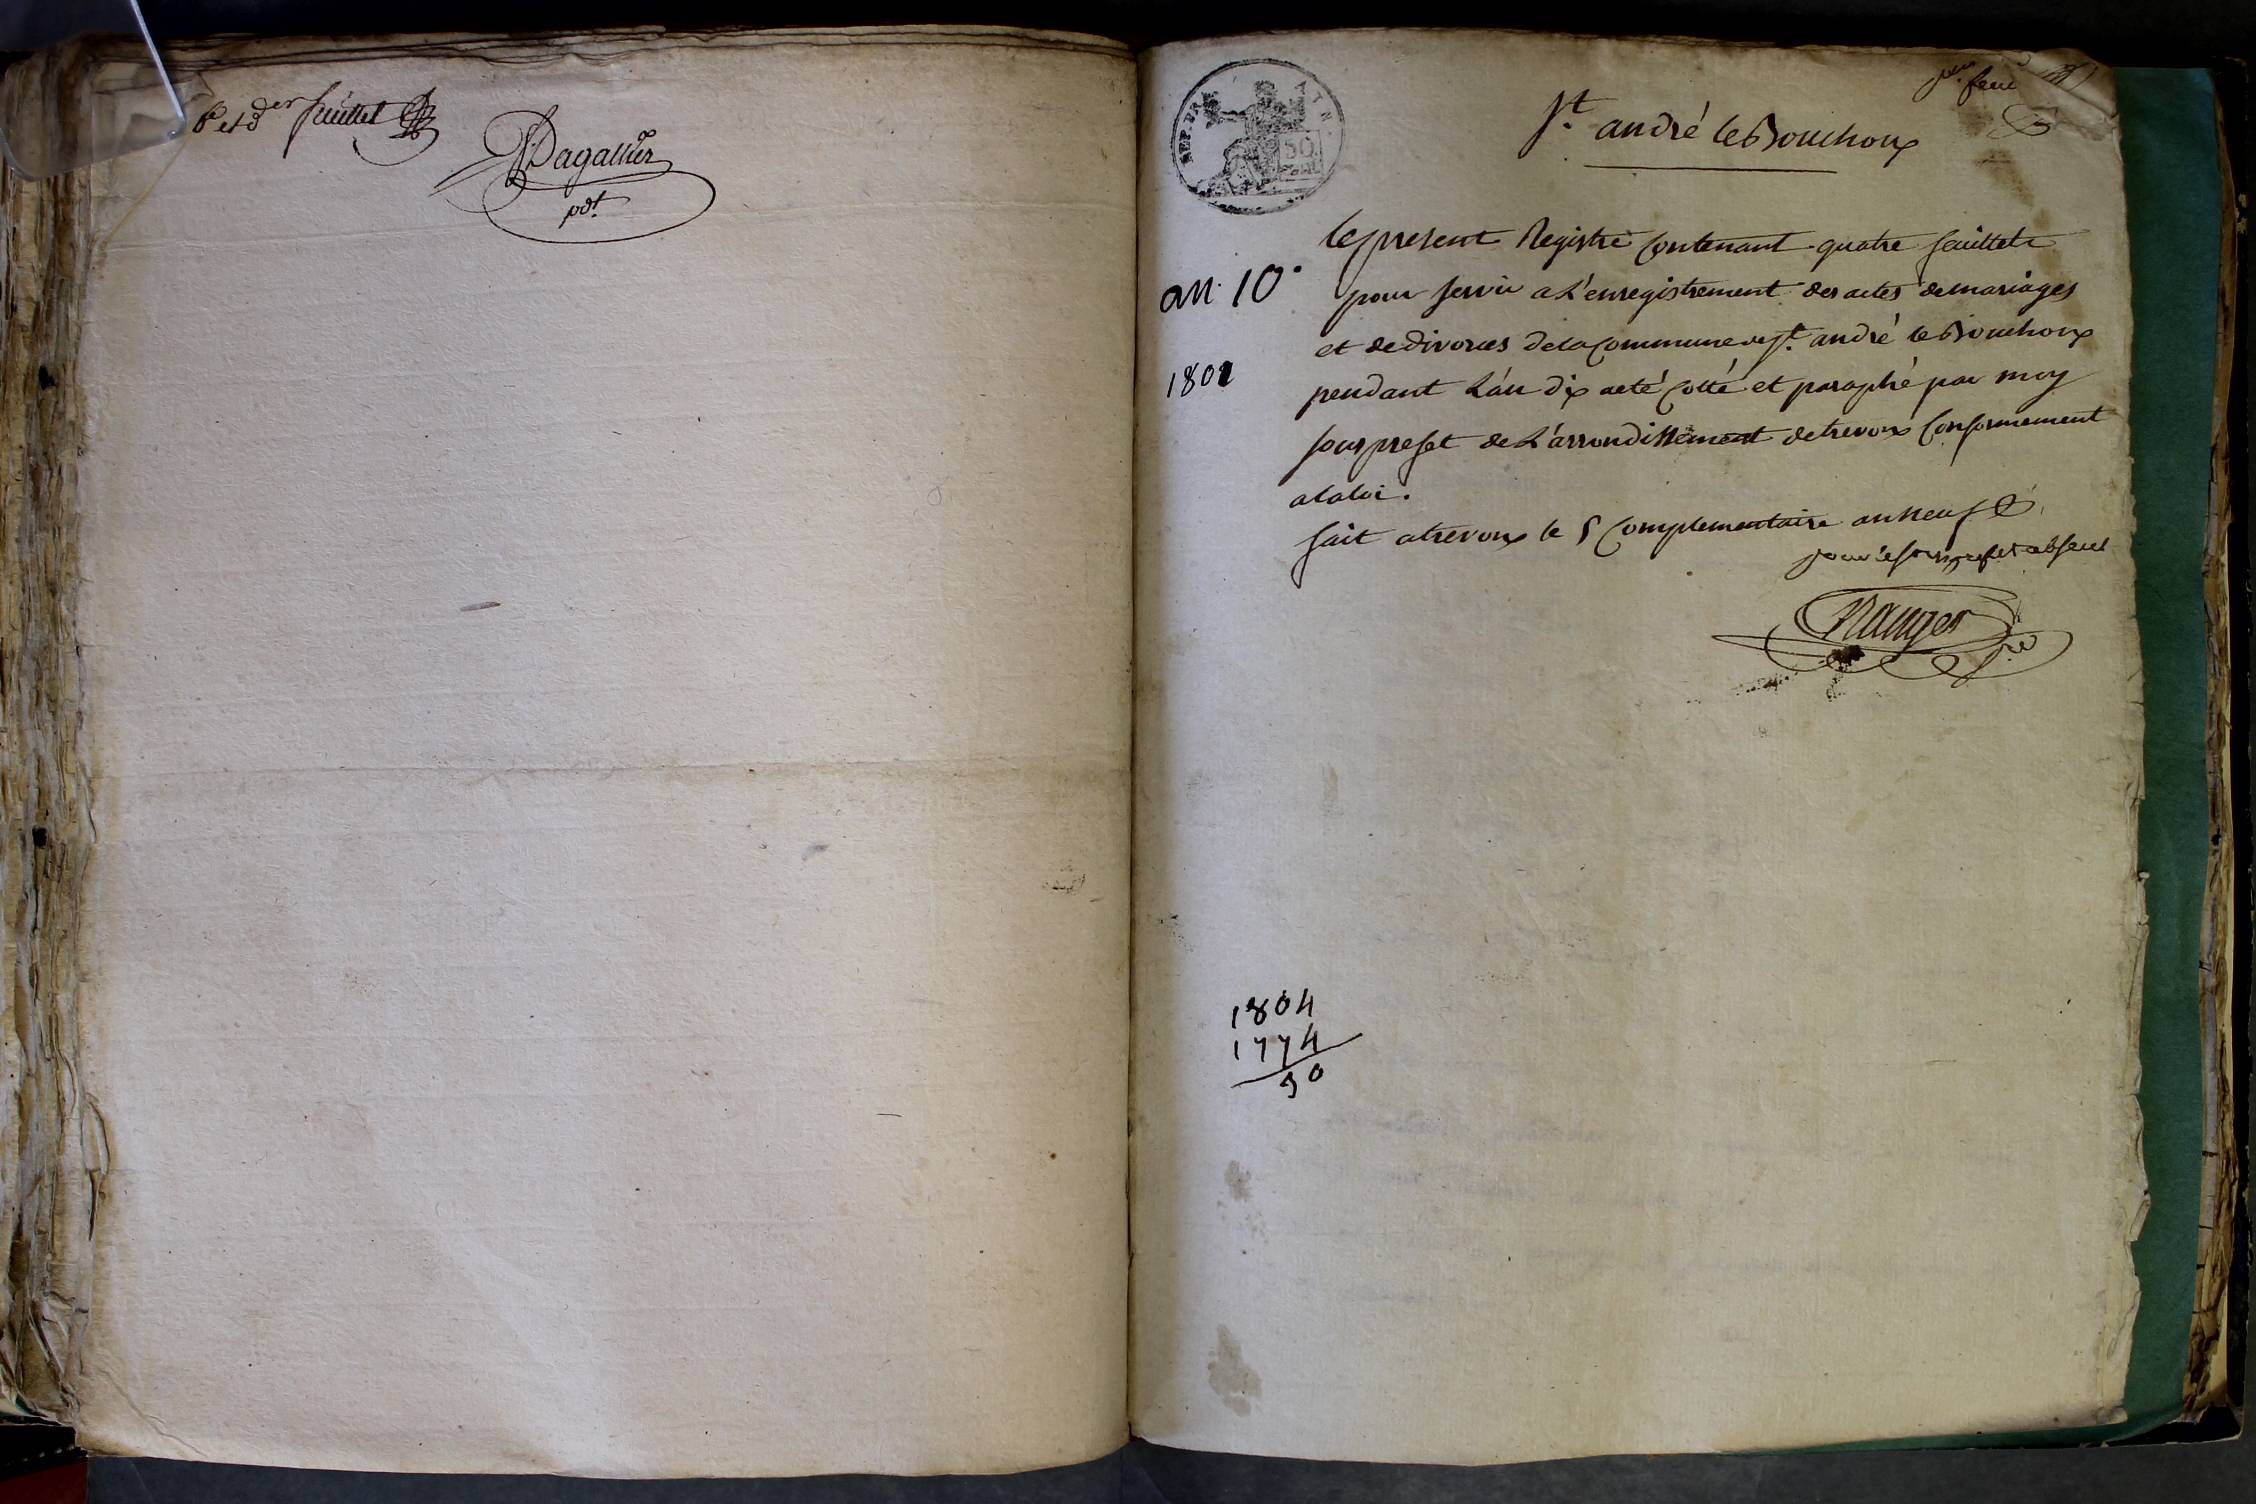 6e et der feuillet
Dagallier
pdt.
REP. FRA
50
St andré le Bouchoux
an. 10.
1802
le present Registre contenant quatre feuillets
pour servir a L'enregistrement des actes de mariages
et de divorces de la Commune de St. andré le Bouchoux
pendant L'an dix a eté cotté et paraphé par moy
sous prefet de L'arrondissement de trevoux conformement
a la loi.
fait a trevoux le 5 complementaire an neuf
pour le sous prefet absent
1804
1774
30